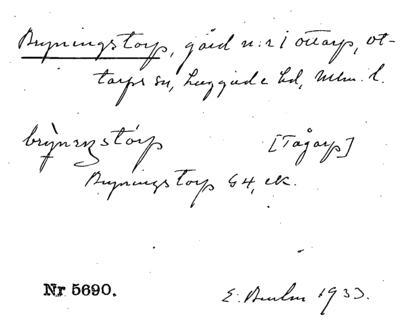 Bryningstorp, gård n:r 1 Ottarp, Ot-
tarps sn, Luggude hd, Mlm. l.
brỳnıŋstórp [Tågarp]
Bryningstorp G4, ek.
Nr 5690.
E. 1933.